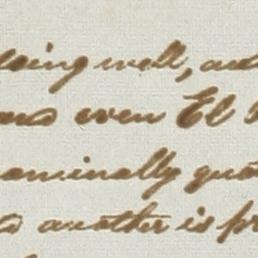 doing well, and
and even El
nominally quo
another is pr